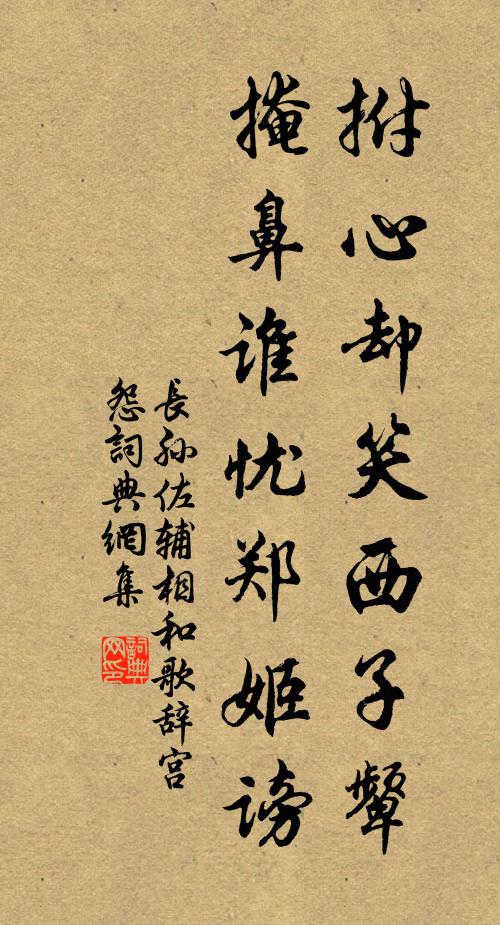 拊心却笑西子顰
掩鼻谁忧郑姬谤
長孙佐辅相和歌辞宫
怨詞典網集
詞典网印